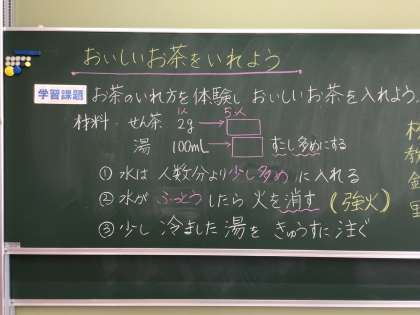 おいしいお茶をいれよう
学習課題 お茶のいれ方を体験し おいしいお茶を入れよう。
1人 5人
材料・せん茶 2g → □
湯 100mL → □ すこし多めにする
① 水は 人数分より少し多めに入れる
② 水が ふっとうしたら 火を消す (強火)
③ 少し 冷ました湯を きゅうすに注ぐ